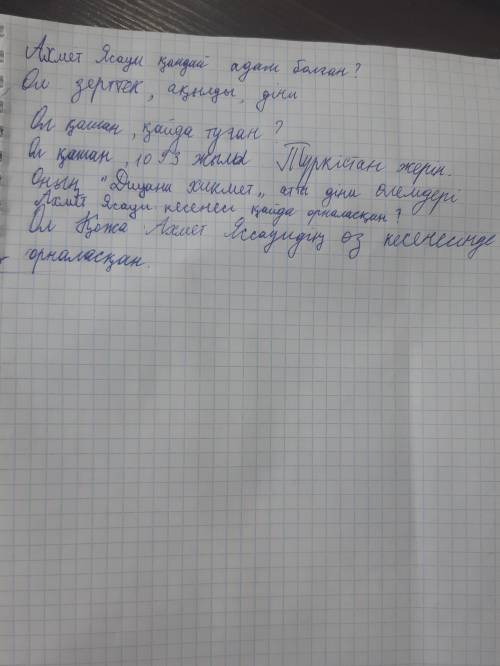 Ахмет Ясауи қандай адам болған?
Ол зерттек, ақылды, діни
Ол қашан, қайда туған?
Ол қашан, 1093 жылы Түркістан жерін.
Оның "Диуани хикмет„ атты діни өлеңдері
Ахмет Ясауи кесенесі қайда орналасқан?
Ол Қожа Ахмет Яссауидің өз кесенесінде
орналасқан.